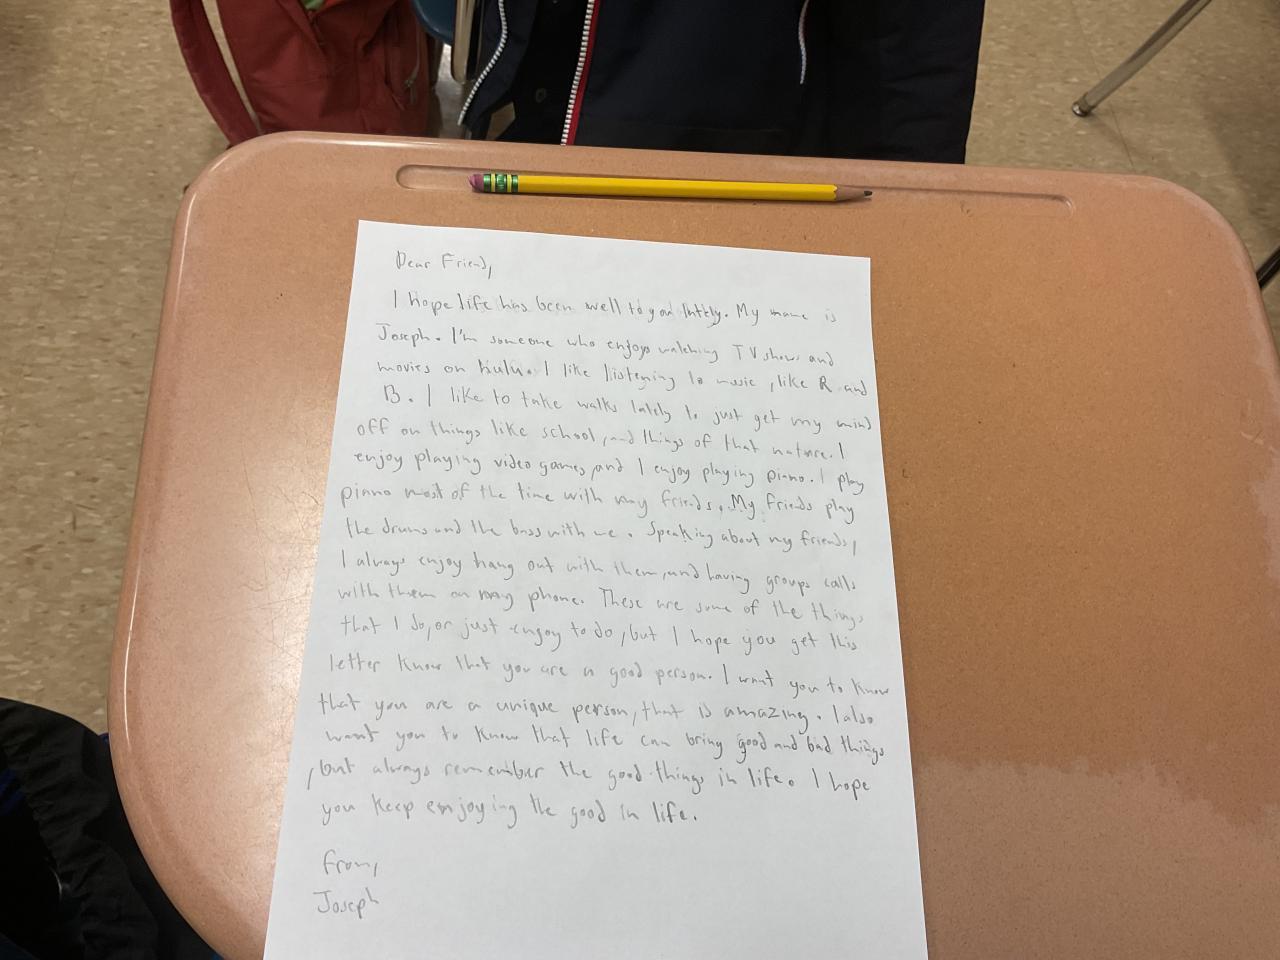 Dear Friend,
I hope life has been well to you lately. My name is
Joseph. I'm someone who enjoys watching TV shows and
movies on hulu. I like listening to music, like R and
B. I like to take walks lately to just get my mind
off on things like school, and things of that nature. I
enjoy playing video games, and I enjoy playing piano. I play
piano most of the time with my friends. My friends play
the drums and the bass with me. Speaking about my friends,
I always enjoy hang out with them, and having groups calls
with them on my phone. These are some of the things
that I do, or just enjoy to do, but I hope you get this
letter know that you are a good person. I want you to know
that you are a unique person, that is amazing. I also
want you to know that life can bring good and bad things
, but always remember the good things in life. I hope
you keep enjoying the good in life.
From,
Joseph